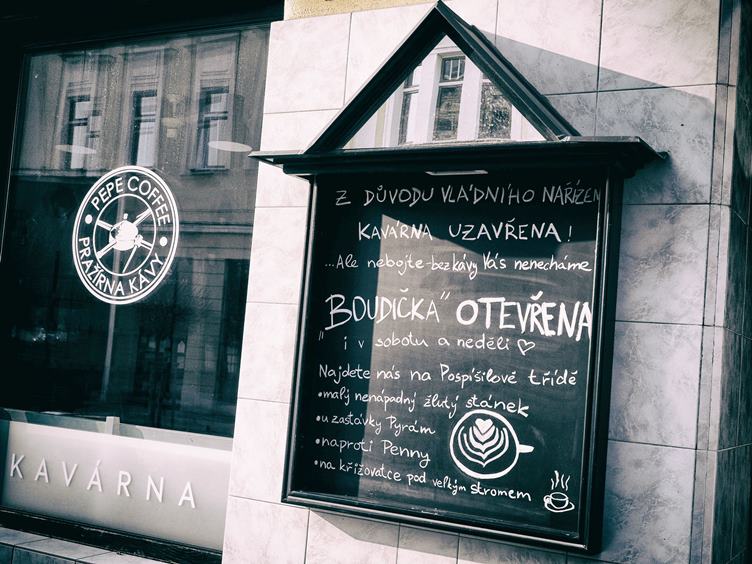 PEPE COFFEE
PRAŽÍRNA KÁVY
KAVÁRNA
Z DŮVODU VLÁDNÍHO NAŘÍZEN
KAVÁRNA UZAVŘENA!
...Ale nebojte-bez kávy Vás nenecháme
"BOUDIČKA" OTEVŘENA
i v sobotu a neděli ♡
Najdete nás na Pospíšilově třídě
•malý nenápadný žlutý stánek
•u zastávky Pyrám
•naproti Penny
•na křižovatce pod velkým stromem